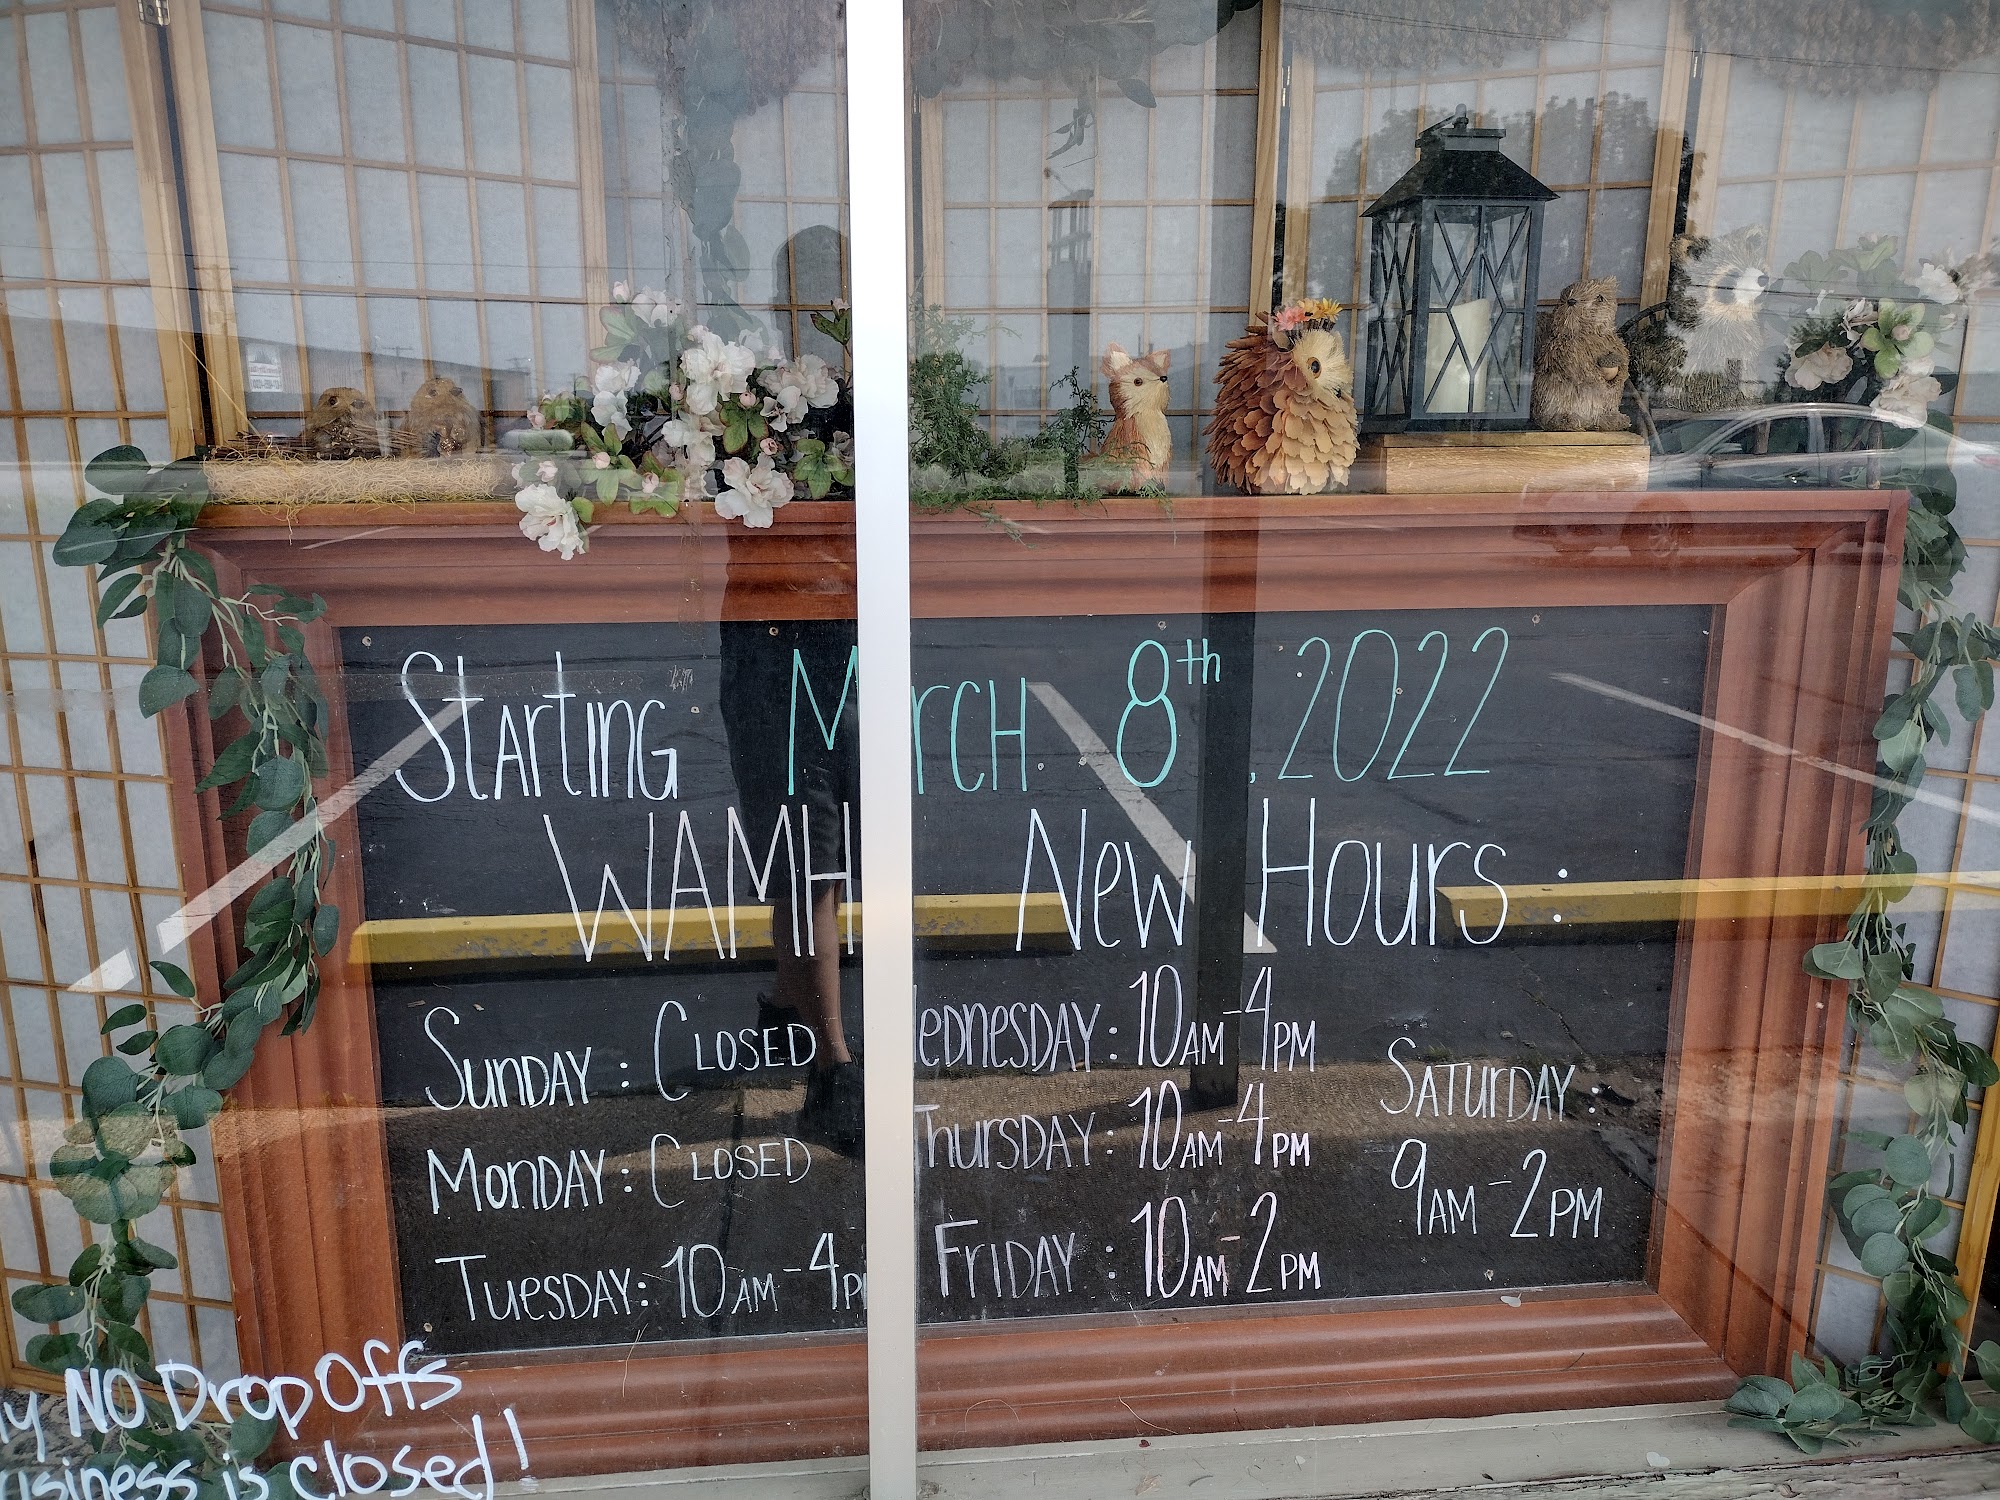 Starting M rch 8th, 2022
WAMH New Hours:
Sunday: Closed
Monday: Closed
Tuesday: 10am-4p
ednesday: 10am-4pm
Thursday: 10am-4pm
Friday: 10am-2pm
Saturday:
9am-2pm
ly NO Drop Offs
usiness is closed!